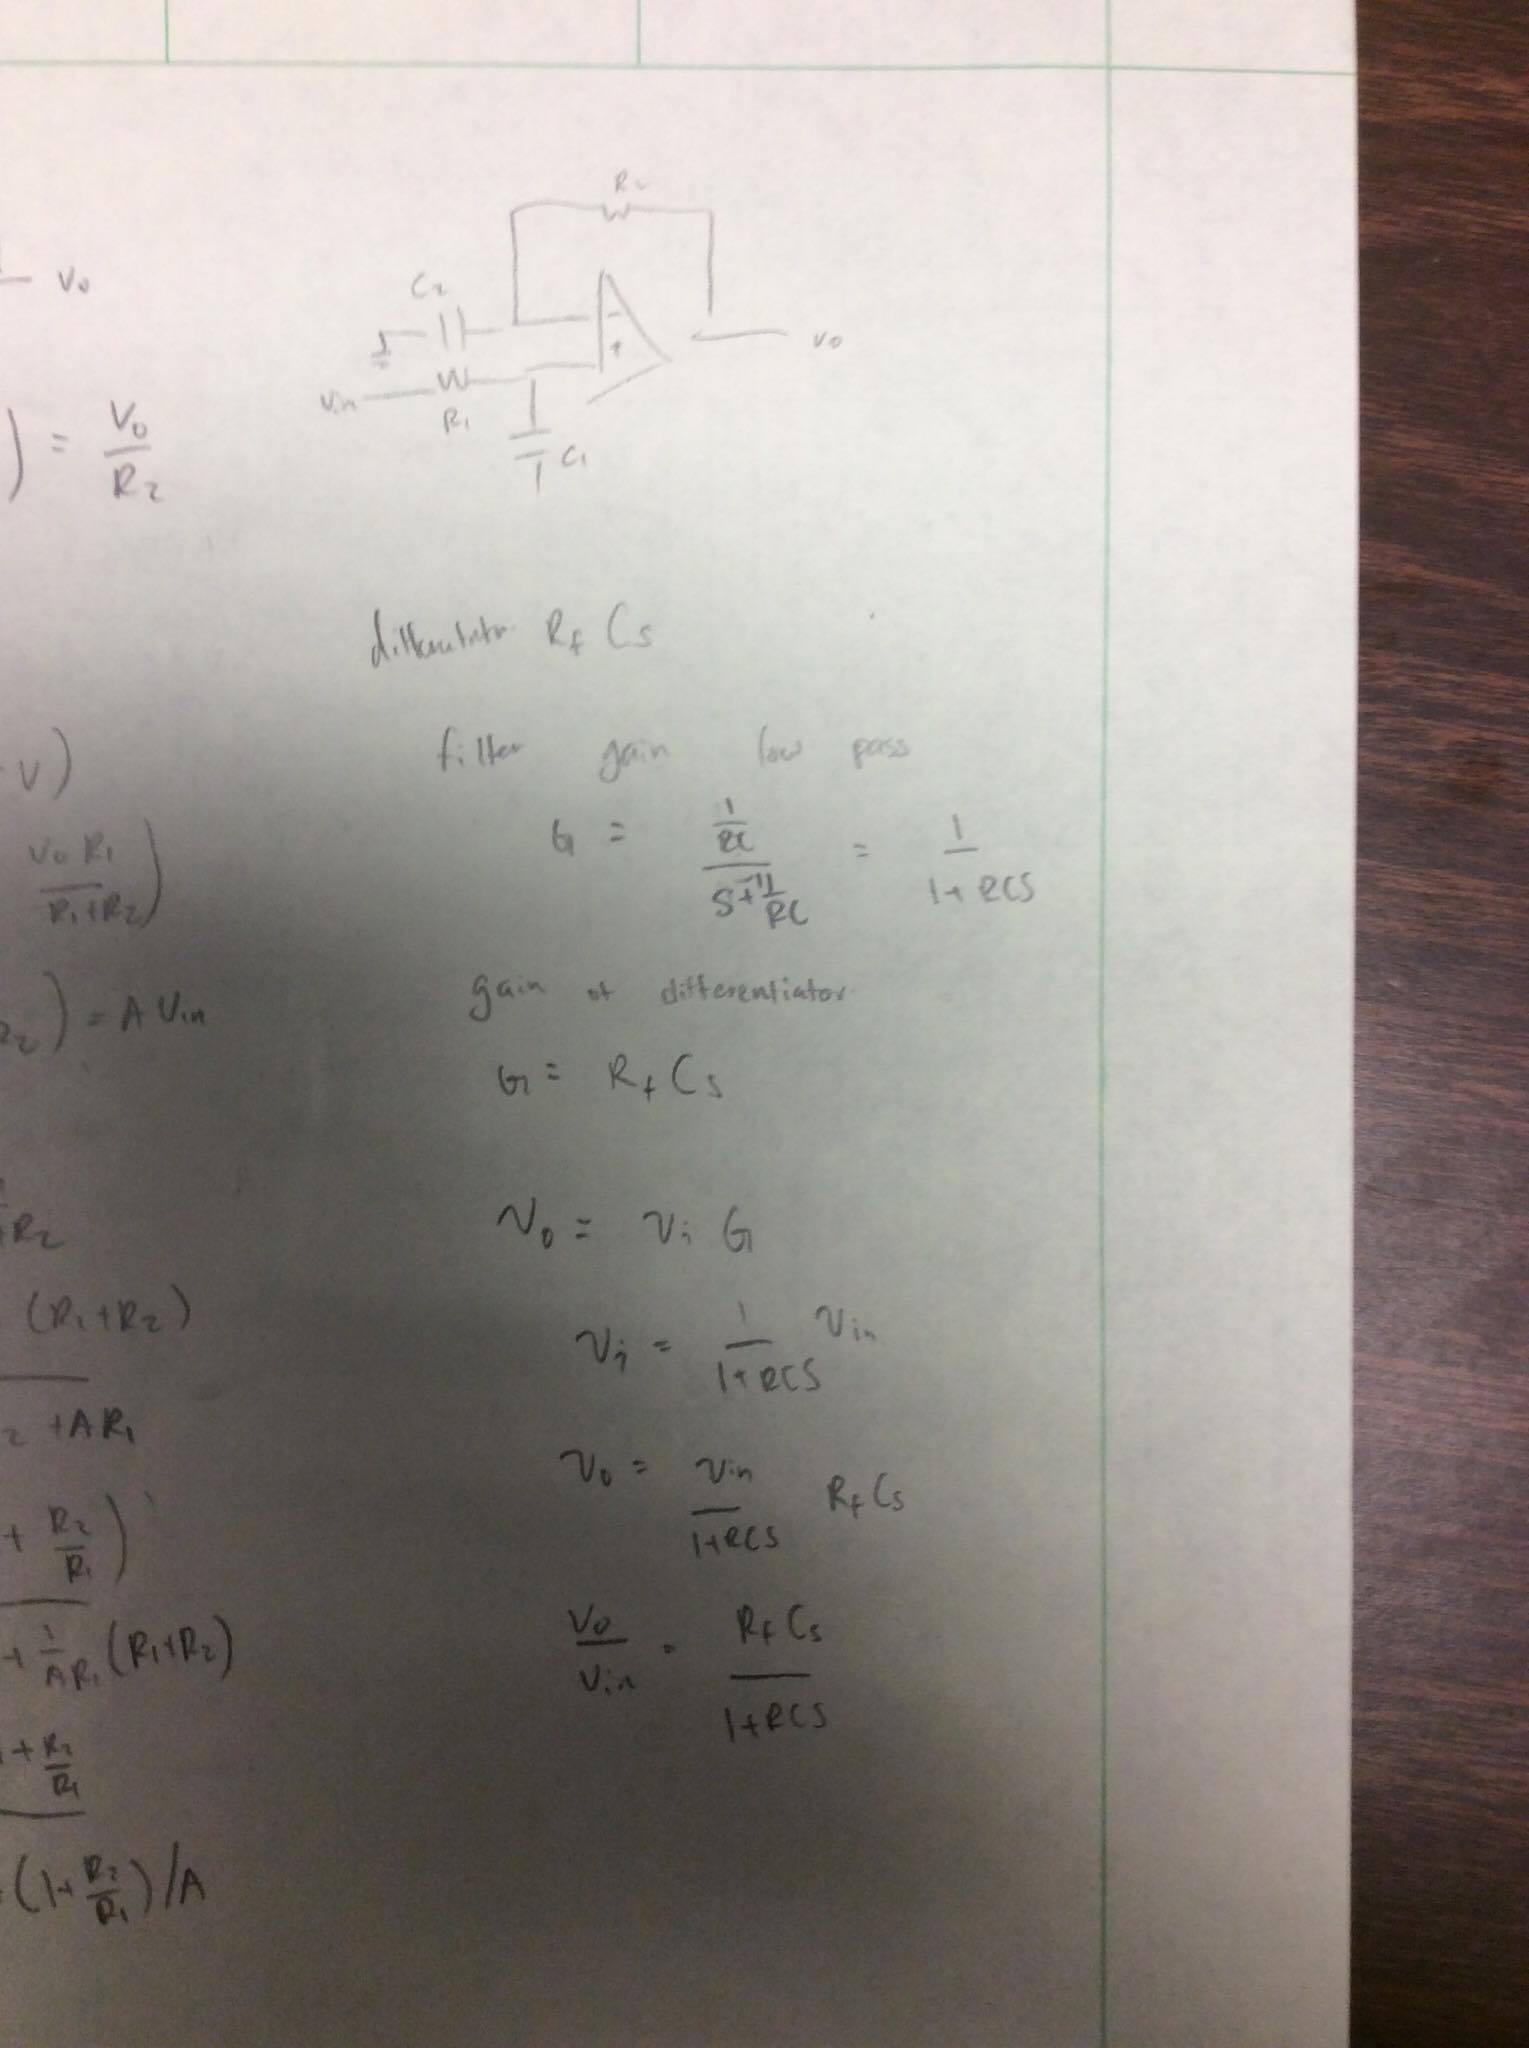 V₀
) = V₀/R₂
V)
V₀R₁/(R₁+R₂))
R₂) = A Vin
+R₂
(R₁+R₂)
₂ + AR₁
+ R₂/R₁)
+ 1/AR₁ (R₁+R₂)
1 + R₂/R₁
(1+R₂/R₁)/A
R₂
C₂
- +
V₀
Vin
R₁
C₁
Rf Cs
filter gain low pass
G = (1/RC)/(s+1/RC) = 1/(1+RCS)
gain of differentiator
G = Rf Cs
V₀ = Vi G
Vi = 1/(1+RCS) Vin
V₀ = Vin/(1+RCS) Rf Cs
V₀/Vin = Rf Cs/(1+RCS)